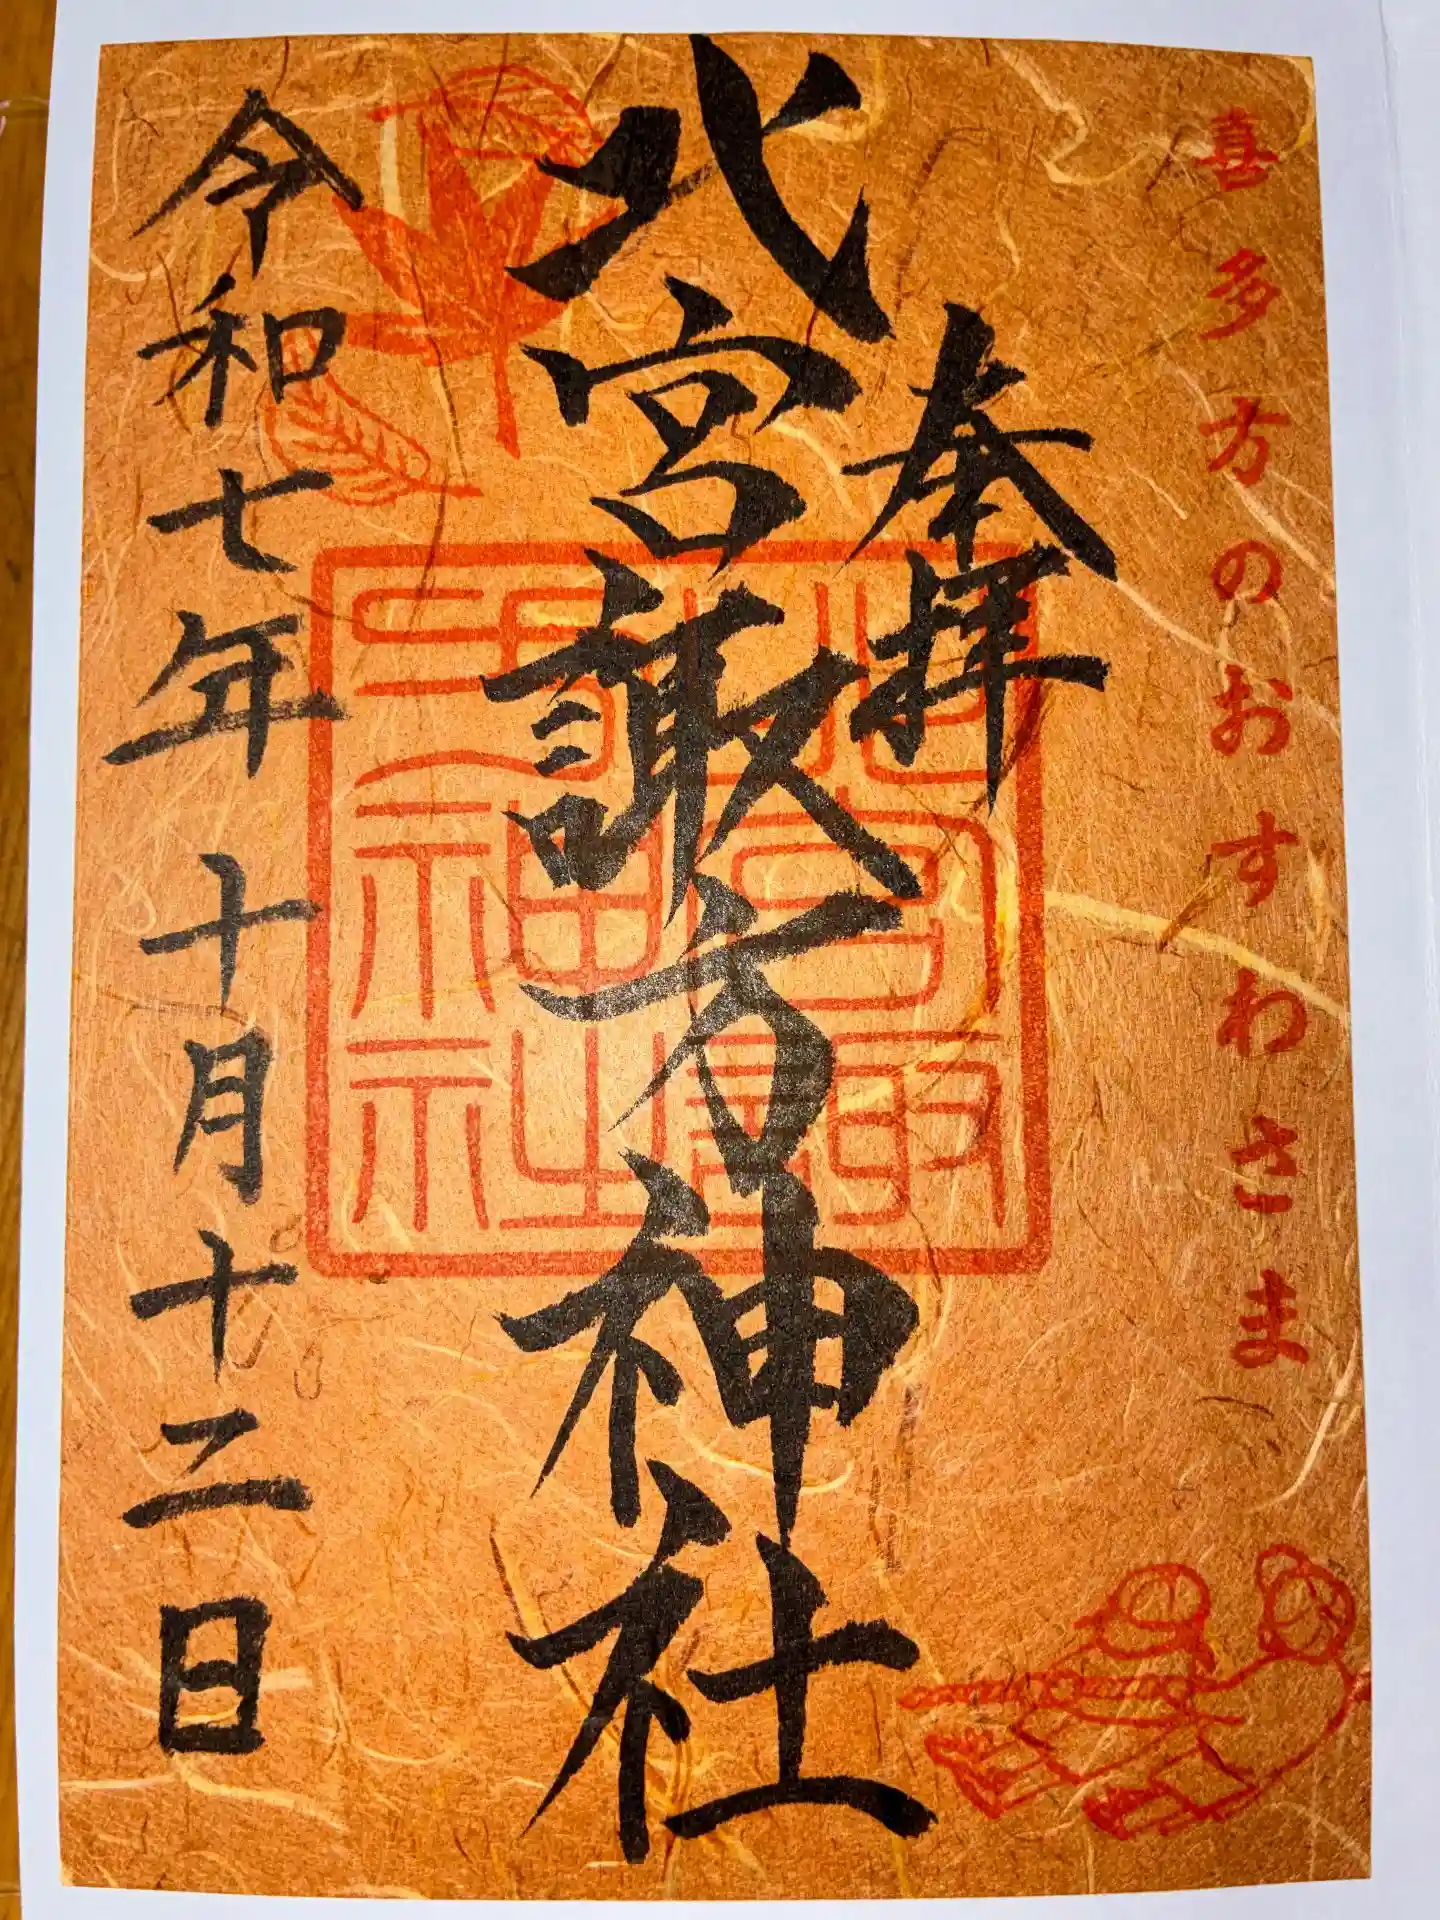 喜多方のおすわさま
奉拝
北宮諏方神社
北宮諏
方神社
令和七年十月十二日